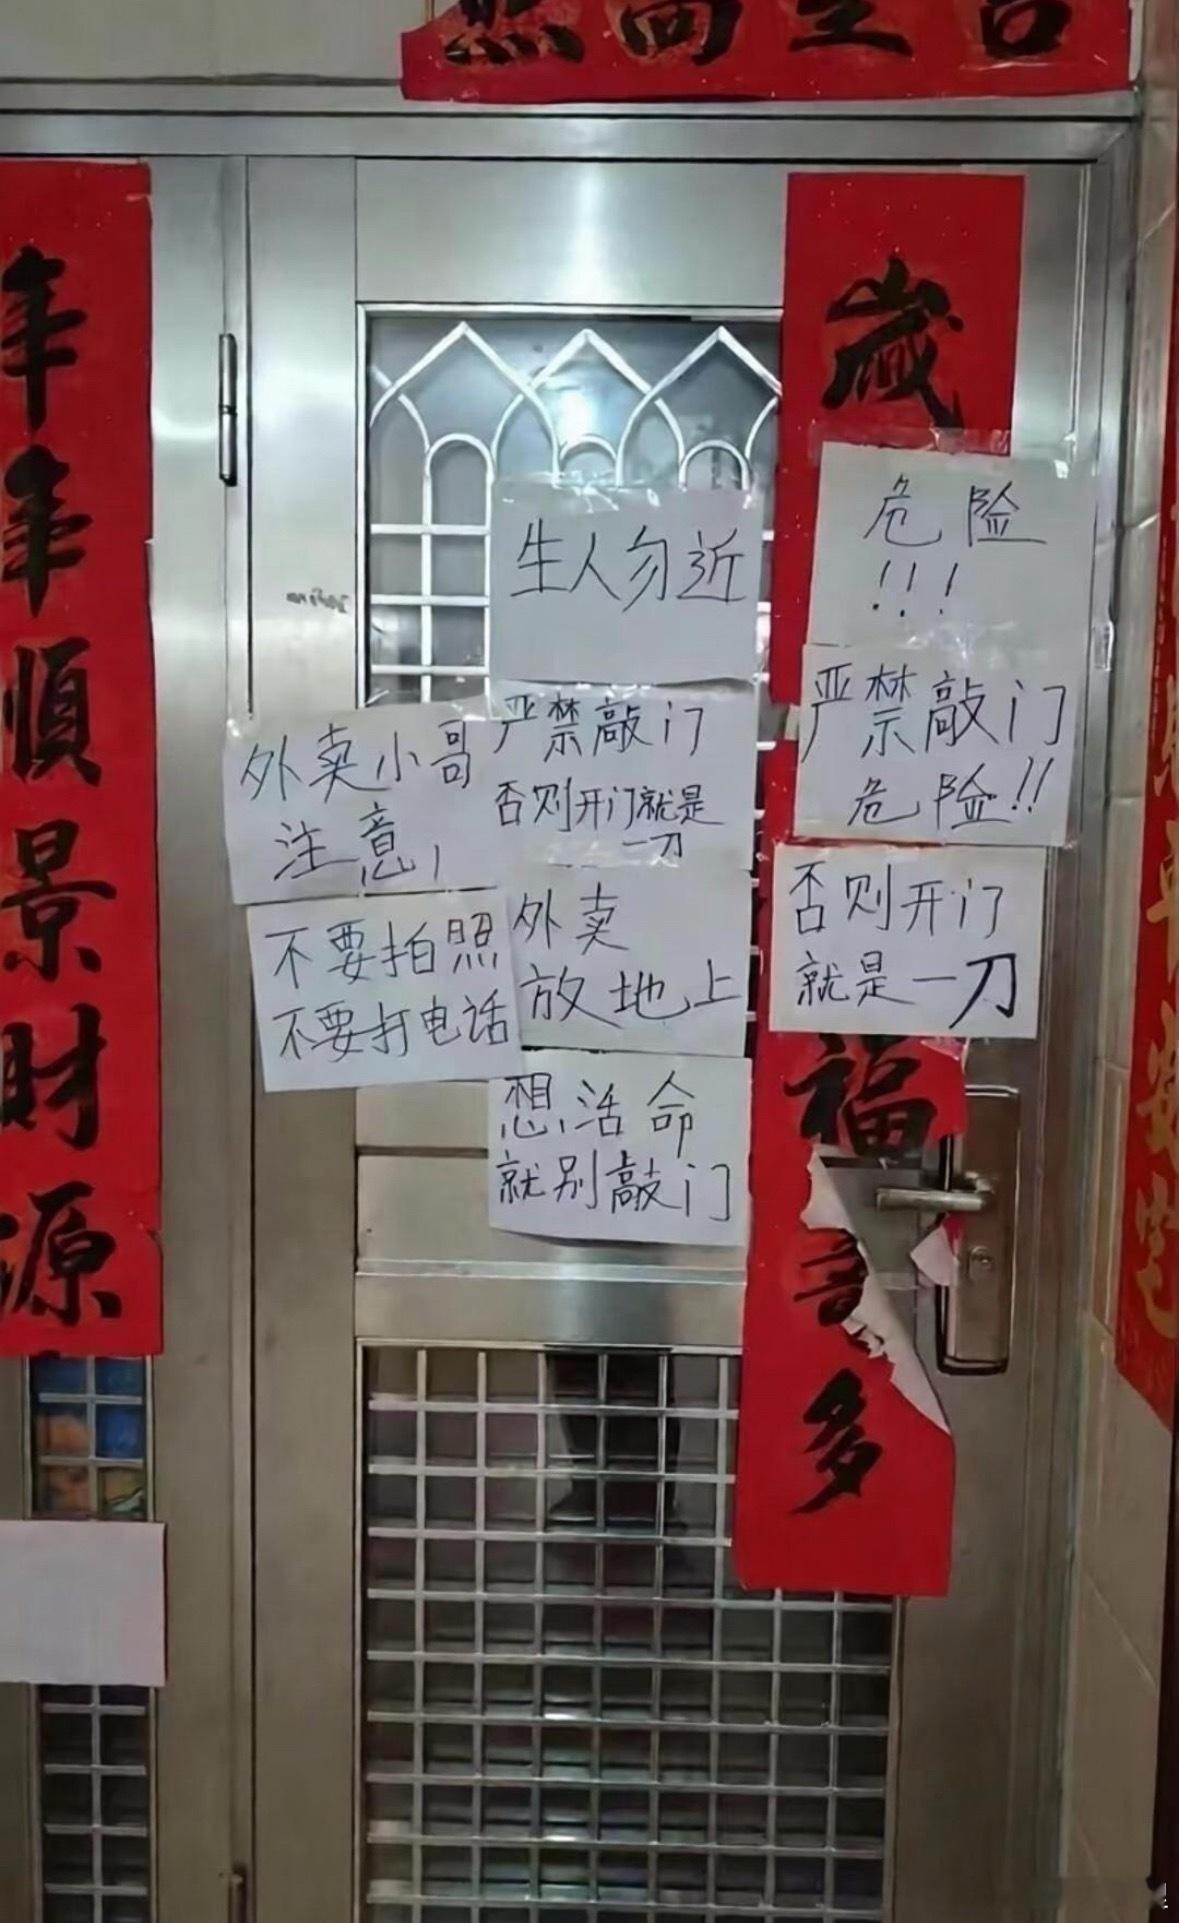 年年順景財源
歲
福
多
生人勿近
危险
!!!
严禁敲门
否则开门就是
一刀
严禁敲门
危险!!
外卖小哥
注意!
不要拍照
不要打电话
外卖
放地上
否则开门
就是一刀
想活命
就别敲门